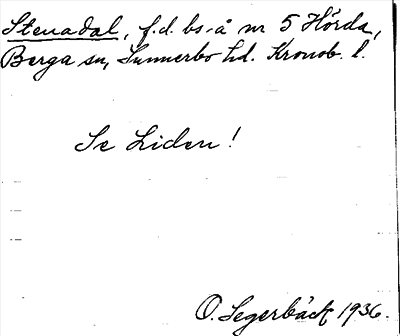 Stenadal, f.d. bs. å nr 5 Hörda,
Berga sn, Sunnerbo hd. Kronob. l.
Se Liden!
O. Segerbäck 1936.